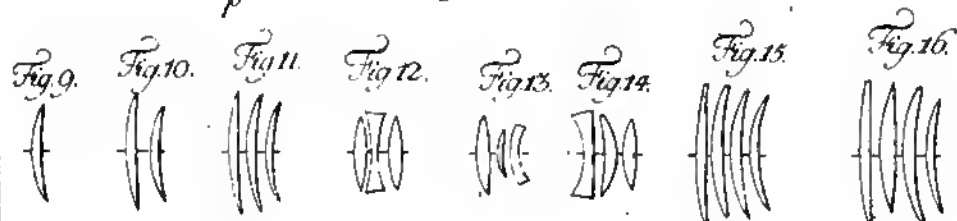 Fig. 9. Fig. 10. Fig. 11. Fig. 12. Fig. 13. Fig. 14. Fig. 15. Fig. 16.